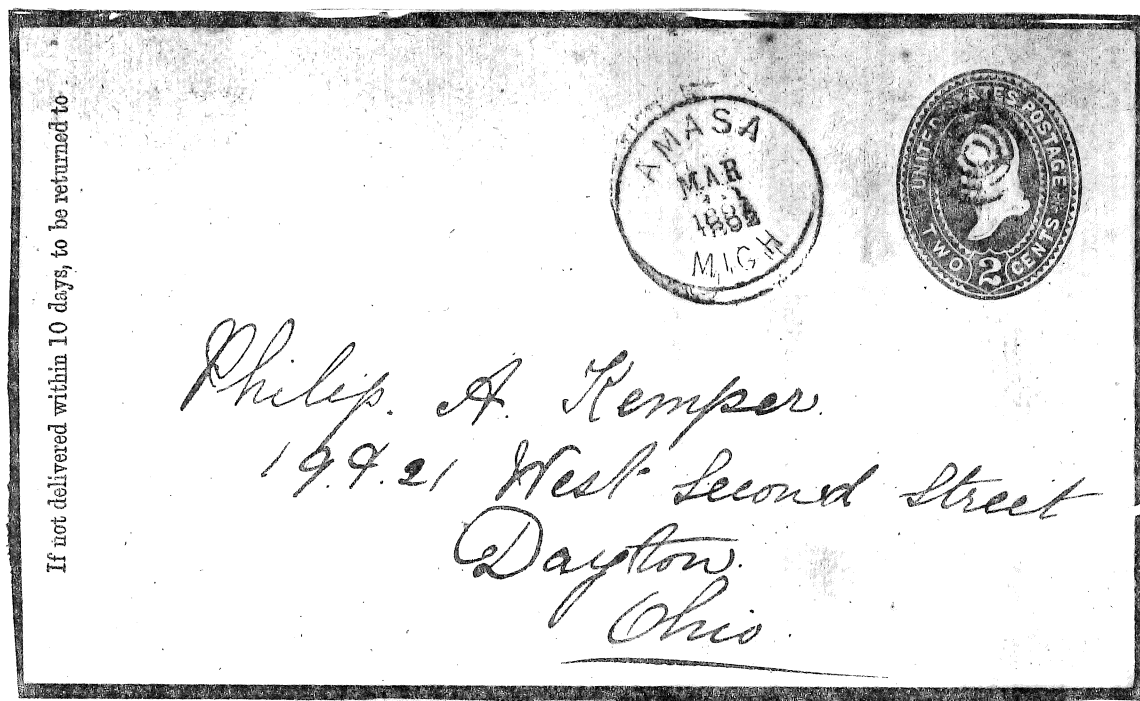 If not delivered within 10 days, to be returned to
AMASA
MAR
MICH
UNITED STATES POSTAGE
TWO 2 CENTS
Philip. A. Kemper.
19.&.21 West Second Street
Dayton.
Ohio.